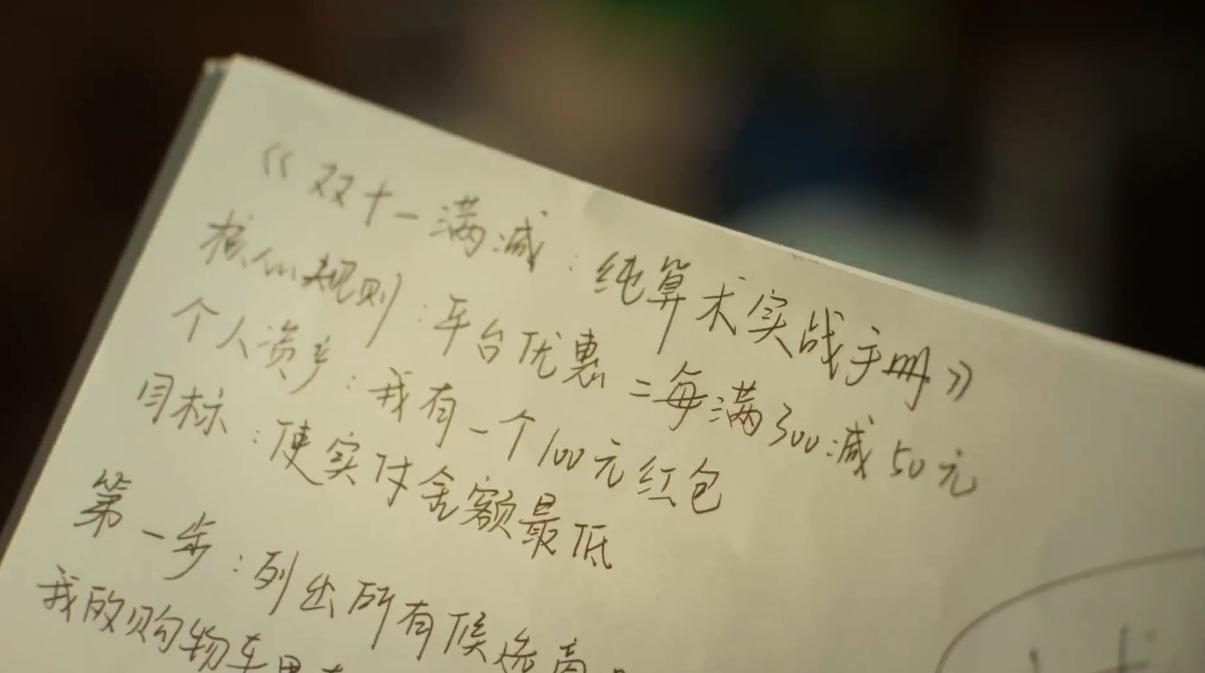 《双十一满减：纯算术实战手册》
核心规则：平台优惠=每满300减50元
个人资产：我有一个100元红包
目标：使实付金额最低
第一步：列出所有候选商
我的购物车里有